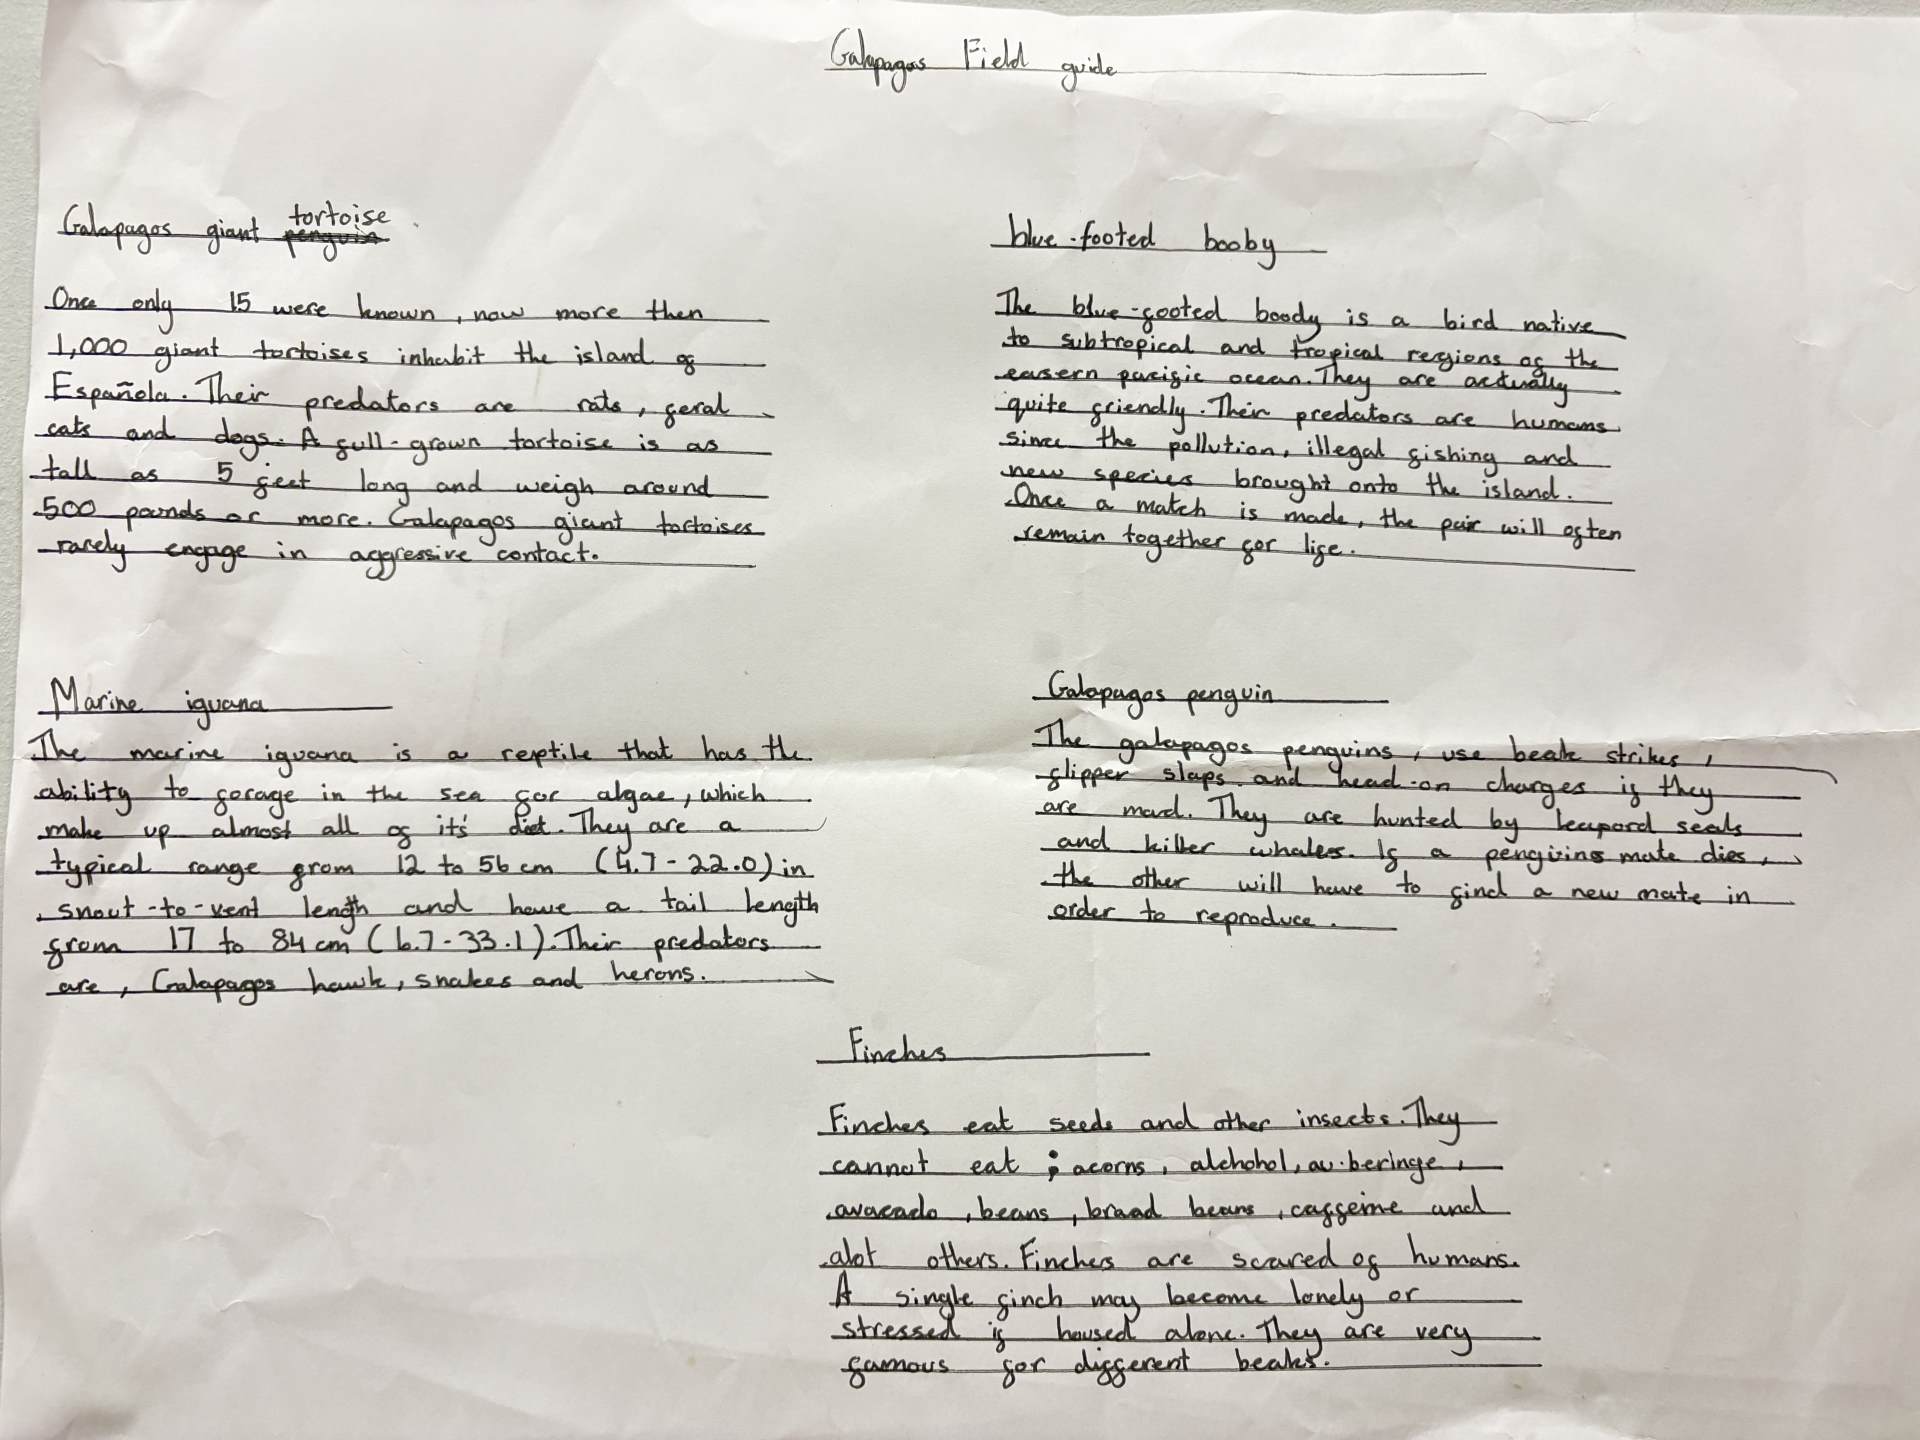 Galapagos Field guide
Galapagos giant tortoise
Once only 15 were known, now more then
1,000 giant tortoises inhabit the island of
Española. Their predators are rats, feral
cats and dogs. A full-grown tortoise is as
tall as 5 feet long and weigh around
500 pounds or more. Galapagos giant tortoises
rarely engage in aggressive contact.
blue-footed booby
The blue-footed boody is a bird native
to subtropical and tropical regions of the
easern pacific ocean. They are actually
quite friendly. Their predators are humans
since the pollution, illegal fishing and
new species brought onto the island.
Once a match is made, the pair will often
remain together for life.
Marine iguana
The marine iguana is a reptile that has the
ability to forage in the sea for algae, which
make up almost all of it's diet. They are a
typical range from 12 to 56 cm (4.7-22.0) in
snout-to-vent length and have a tail length
from 17 to 84 cm (6.7-33.1). Their predators
are, Galapagos hawk, snakes and herons.
Galapagos penguin
The galapagos penguins, use beak strikes,
flipper slaps and head-on charges if they
are mad. They are hunted by leapord seals
and killer whales. If a penguins mate dies,
the other will have to find a new mate in
order to reproduce.
Finches
Finches eat seeds and other insects. They
cannot eat ; acorns, alchohol, au.beringe,
avacado, beans, braad beans, caffeine and
alot others. Finches are scared of humans.
A single finch may become lonely or
stressed if housed alone. They are very
famous for different beaks.